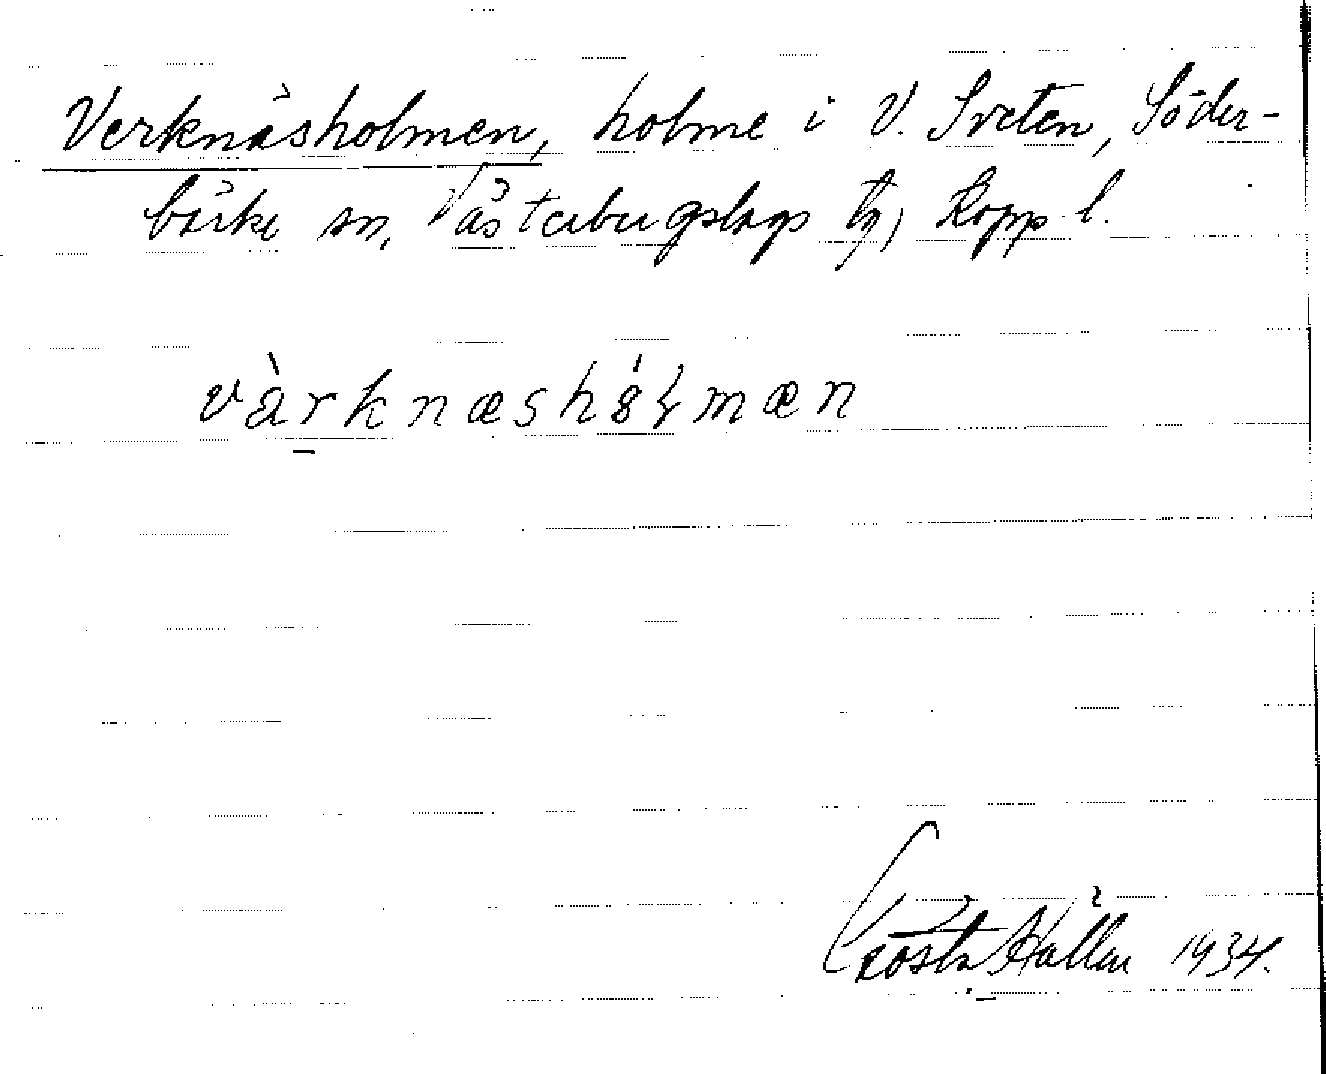 Verknäsholmen, holme i V. Sveten, Söder-
bärke sn, Västerbergslags tg, Kopp. l.
vàrknæshólmæn
Gösta Hallen 1934.